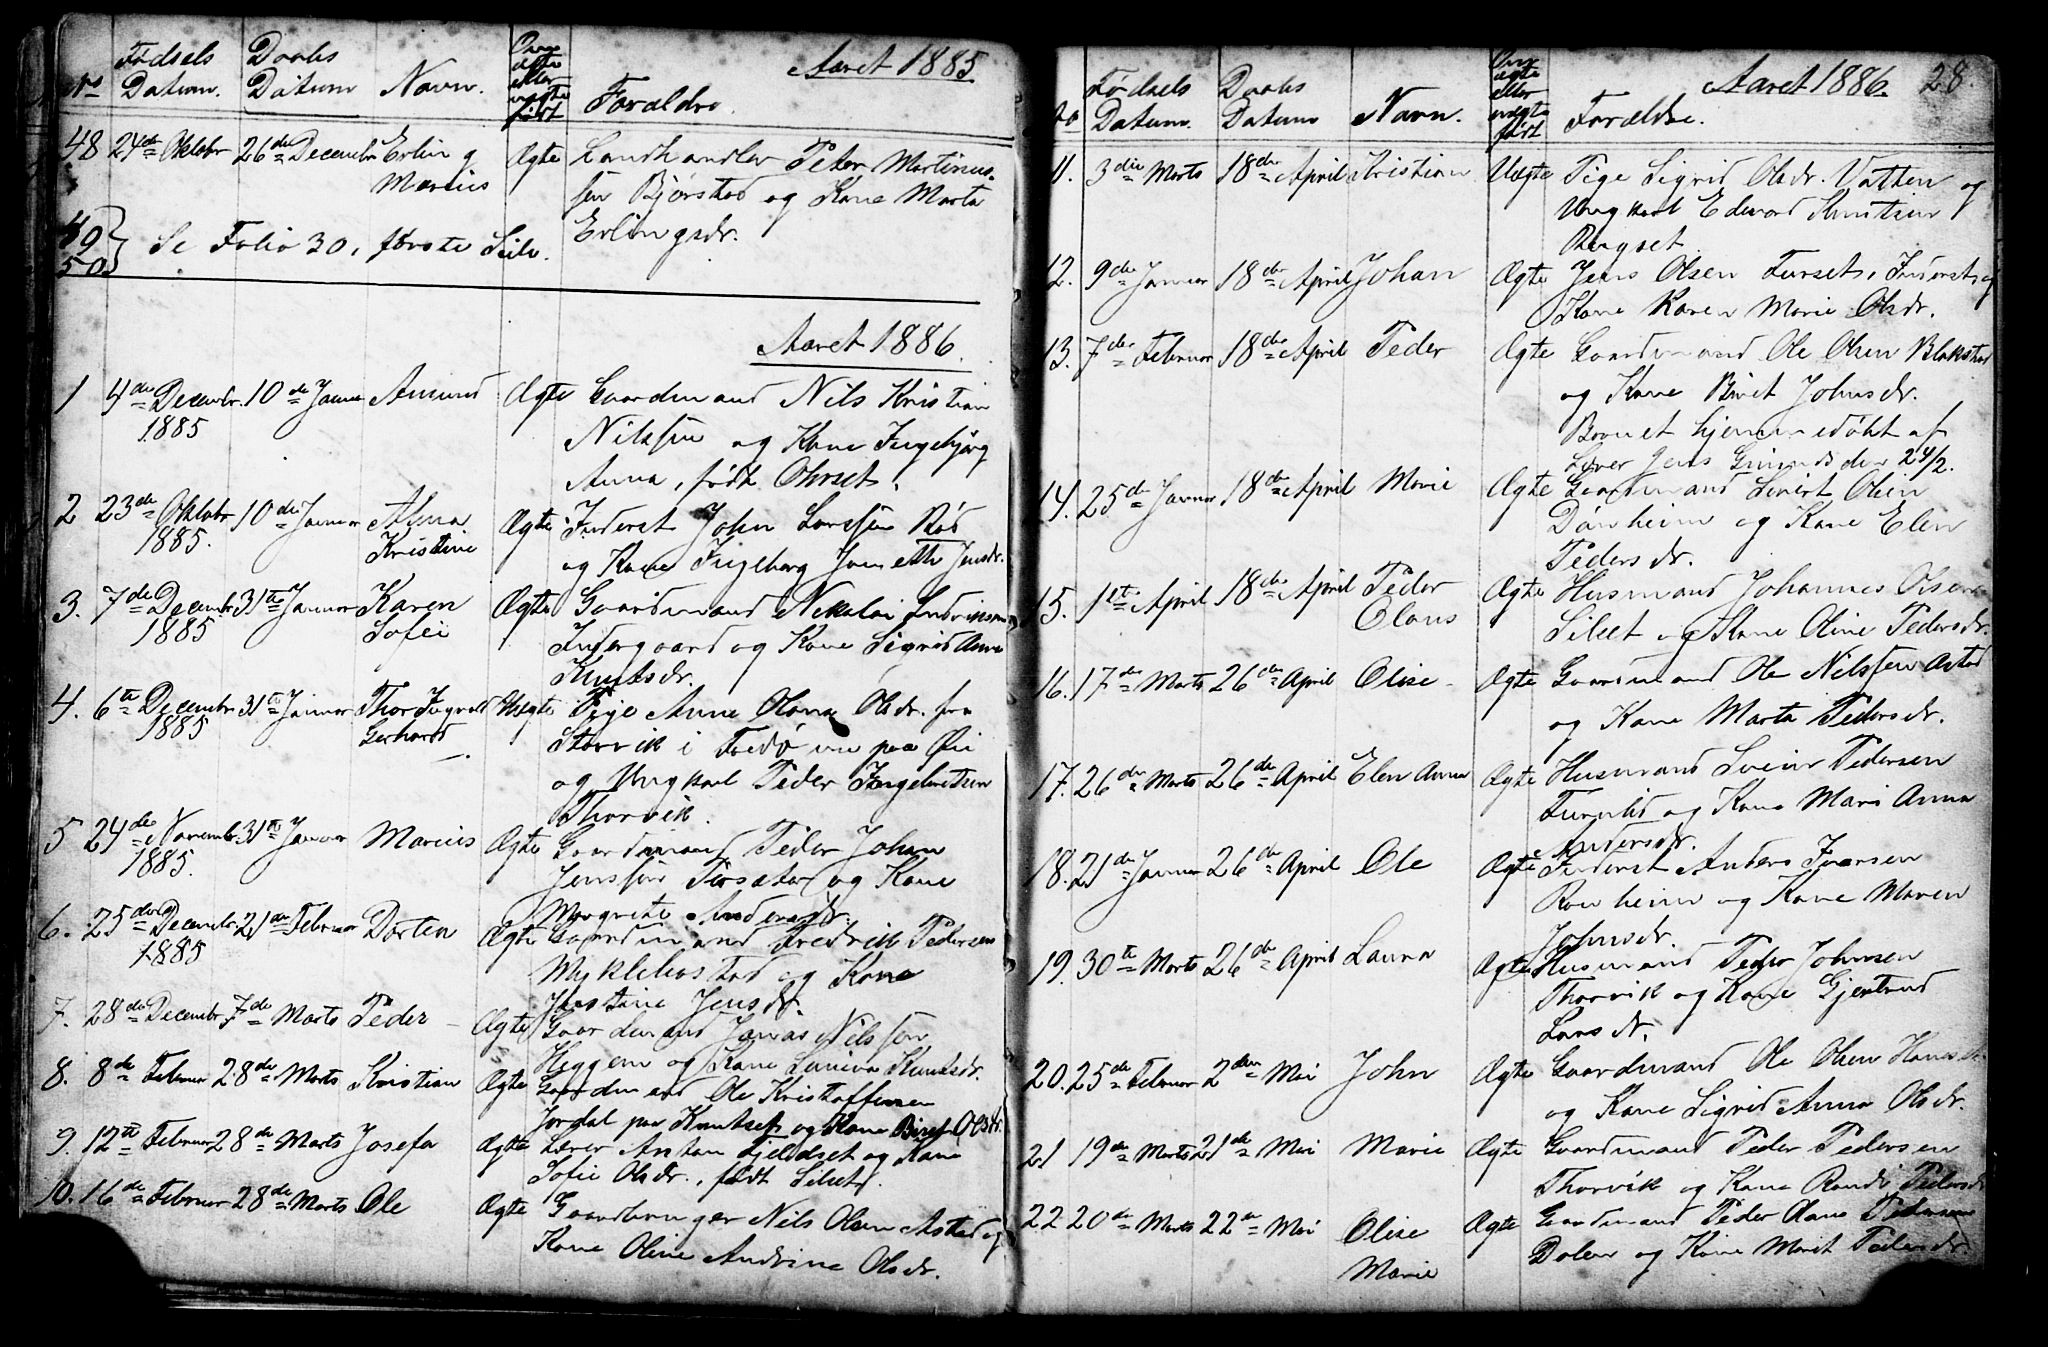 Aaret 1885
No Fødsels Datum. Daabs Datum Navn. Om ægte eller uægte født Forældre.
48 24de Oktobr 26de Decembr Erling Ægte Landhandler Peter Martinus-
Marius sen Bjørstad og Kone Marta
Erlingsdr.
49
50 } Se Folio 30, første Side.
Aaret 1886.
1 4de Decembr. 10de Januar Amund Ægte Gaardmand Nils Kristian
1885 Nilssen og Kone Ingebjørg
Anna, født Ohrset.
2 23de Oktobr 10de Januar Alma Ægte Inderst John Larssen Rød
1885. Kristine og Kone Ingeborg Janette Jensdr.
3. 7de Decembr 31te Januar Karen Ægte Gaardmand Nikolai Endriksen
1885 Sofie Indergaard og Kone Sigrid Anna
Knutsdr.
4. 6te Decembr 31te Januar Thor Ingvald Uægte Pige Anne Olana Olsdr. fra
1885 Gerhard Storvik i
og Ungkarl Peder Ingebretsen
Thorvik.
5 24de Novembr. 31te Januar Marius Ægte Gaardmand Peder Johan
1885. Jenssen og Kone
Margrete Andersdr.
6. 25de Decembr 21de Februar Dorten Ægte Gaardmand Fredrik Pedersen
1885 Myklebostad og Kone
Justine Jensdr.
7. 28de Decembr. 7de Marts Peder Ægte Gaardmand Jonas Nilssen
Heggem og Kone Knutsdr.
8. 8de Februar 28de Marts Kristian Ægte Gaardmand Ole Kristoffersen
Jordal paa og Kone Biret Olsdr.
9. 12te Februar 28de Marts Josefa Ægte Lærer Anton Fjeldset og Kone
Sofie Olsdr., født Silset.
10. 16de Februar 28de Marts Ole Ægte Gaardbruger Nils Olsen Astad og
Kone Oline Andrina Olsdr.
Aaret 1886. 28.
No Fødsels Datum. Daabs Datum Navn. Om ægte eller uægte født Forældre.
11. 3die Marts 18de April Kristian Uægte Pige Sigrid Olsdr. Vatten og
Ungkarl Edvard Knutsen
12. 9de Januar 18de April Johan Ægte Jens Olsen Furset, Inderst, og
Kone Karen Marie Olsdr.
13. 7de Februar 18de April Peder Ægte Gaardmand Ole Olsen Blakstad
og Kone Birit Johnsdr.
Barnet hjemmedøbt af
Lærer Jens den 24/2.
14. 25de Januar 18de April Marie Ægte Gaardmand Sivert Olsen
og Kone Elen
Pedersdr.
15. 1ste April 18de April Peder Ægte Husmand Johannes Olsen
Olaus Silset og Kone Oline Pedersdr.
16. 17de Marts 26de April Olise Ægte Gaardmand Ole Nilssen Astad
og Kone Marta Pedersdr.
17. 26de Marts 26de April Elen Anna Ægte Husmand Pedersen
og Kone Mari Anna
Andersdr.
18. 21de Januar 26de April Ole Ægte Inderst Anders Iversen
og Kone Maren
Johnsdr.
19. 30te Marts 26de April Laura Ægte Husmand Peder Johnsen
Thorvik og Kone Gjertrud
Larsdr.
20. 25de Februar 2den Mai John Ægte Gaardmand Ole Olsen
og Kone Sigrid Anna Olsdr.
21 19de Marts 21de Mai Marie Ægte Gaardmand Peder Pedersen
Thorvik og Kone Randi Pedersdr
22 20de Marts 22de Mai Olise Ægte Gaardmand Peder Olaus Pedersen
Marie og Kone Marit Pedersdr.